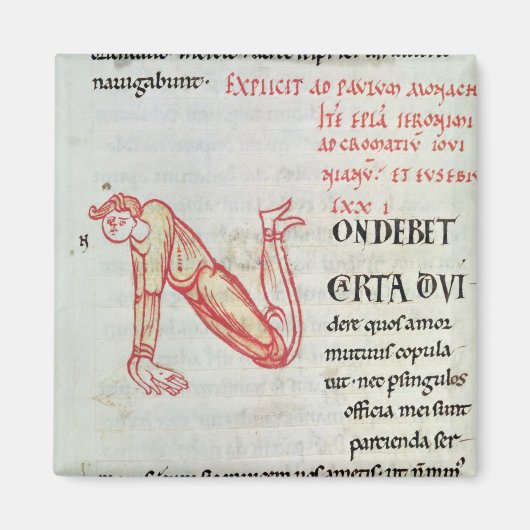 nauigabunt· EXPLICIT AD PAULUM MONACH
ITĒ EPLA IERONIMI
AD CROMATIŪ IOUI
NIANŪ· ET EUSEBIŪ
LXX I
N
ON DEBET
CARTA DIVI
dere quos amor
mutuus copula
uit· nec p singulos
officia mei sunt
partienda ser